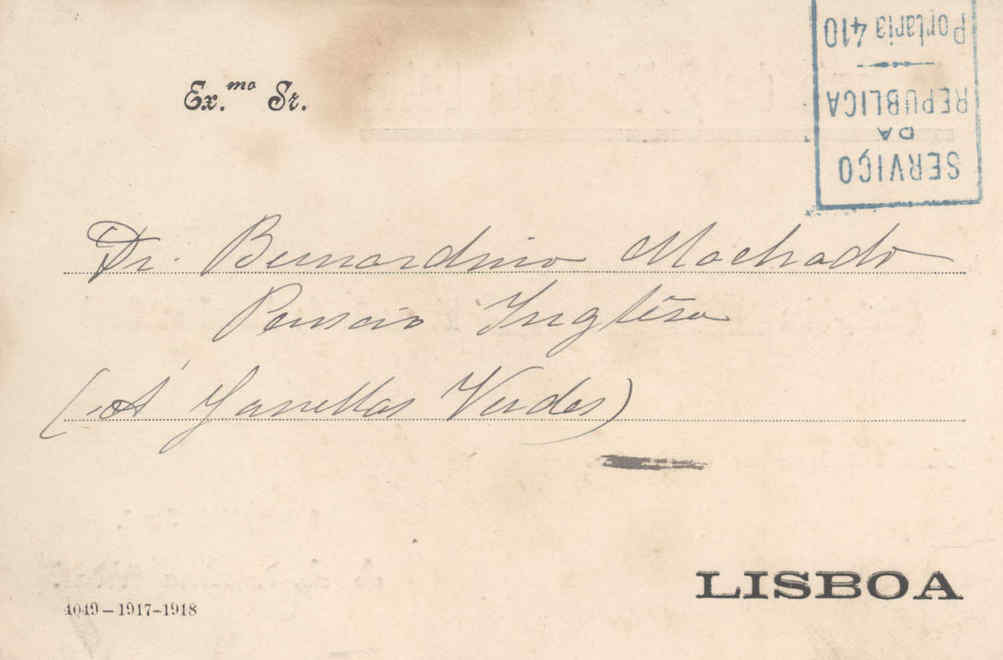 Ex.mo Sr.
SERVIÇO
DA
REPUBLICA
Portaria 410
Dr. Bernardino Machado
Pensão Inglêsa
(Á Janellas Verdes)
LISBOA
4049-1917-1918